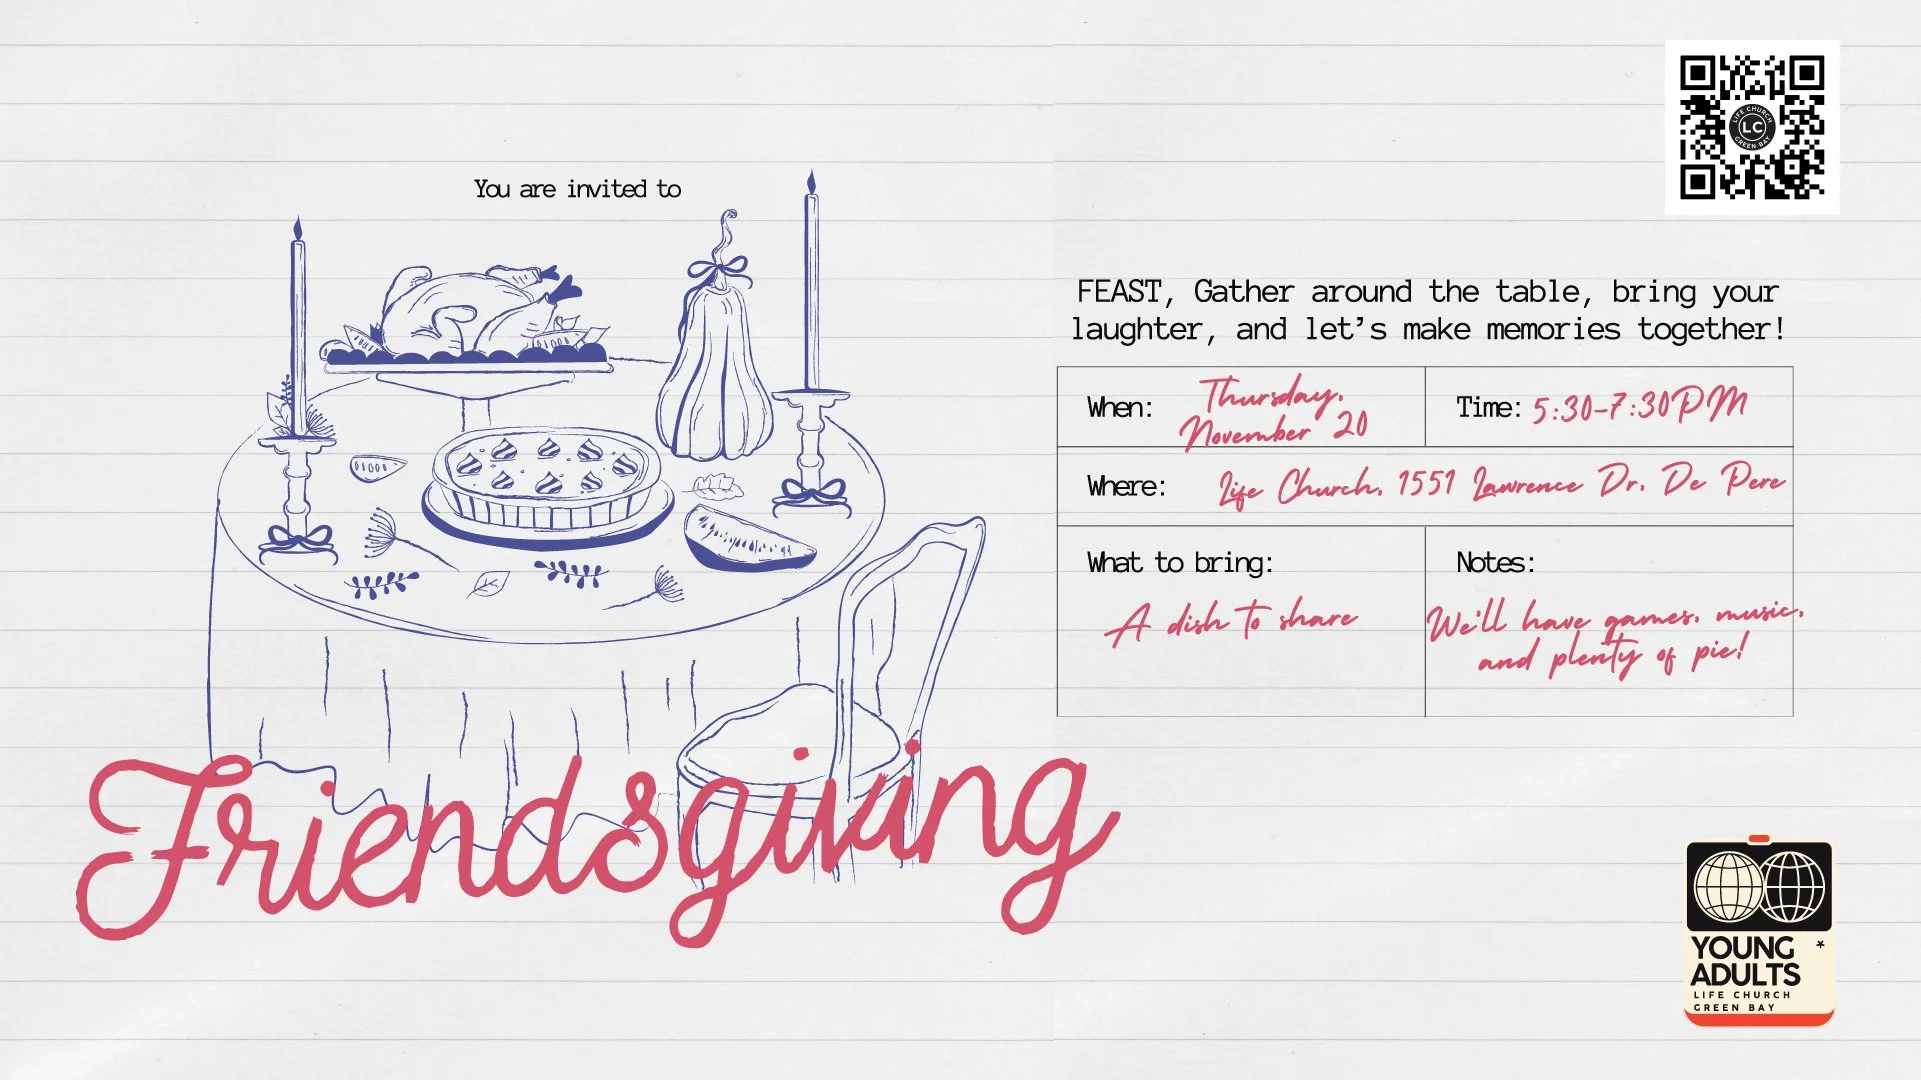 You are invited to
Friendsgiving
LIFE CHURCH
LC
GREEN BAY
FEAST, Gather around the table, bring your
laughter, and let's make memories together!
When: Thursday,
November 20
Time: 5:30-7:30PM
Where: Life Church, 1551 Lawrence Dr. De Pere
What to bring:
A dish to share
Notes:
We'll have games, music,
and plenty of pie!
YOUNG *
ADULTS
LIFE CHURCH
GREEN BAY